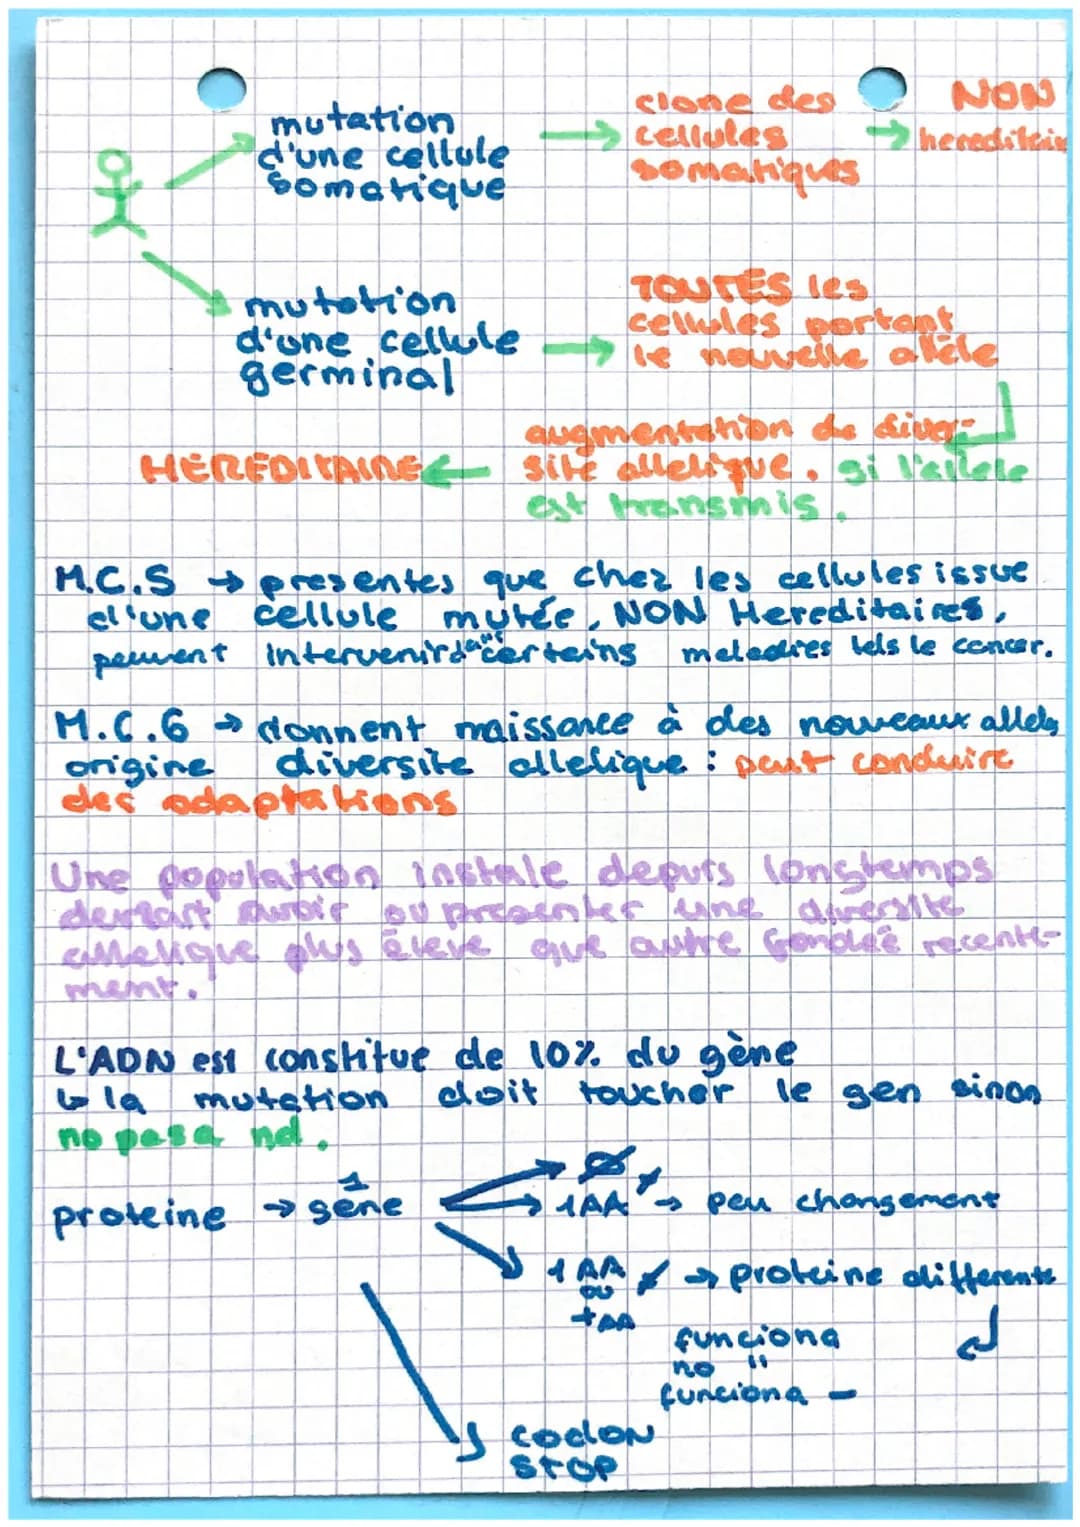 mutation
d'une cellule
somatique
→ clone des
cellules
somatiques
→ NON
hereditair
mutation
d'une cellule
germinal
→ TOUTES les
cellules portant
le nouvelle allèle
augmentation de diver-
sité allelique. si l'allele
est transmis.
HEREDITAIRE
M.C.S → presentes que chez les cellules issue
d'une cellule mutée, NON Hereditaires,
peuvent intervenir dans certains maladies tels le cancer.
M.C.G → donnent naissance à des nouveaux allels
origine diversite allelique : peut conduire
des adaptations
Une population instale depuis longtemps
devrait avoir ou presenter une diversite
allelique plus éleve que autre fondeé recente-
ment.
L'ADN est constitue de 10% du gène
↳ la mutation doit toucher le gen sinon
no pasa nd.
proteine → 1 gène
→ Ø
→ 1AA ≠ → peu changement
1 AA ≠ → proteine differente
ou
+AA
funciona
no "
funciona -
codon
STOP